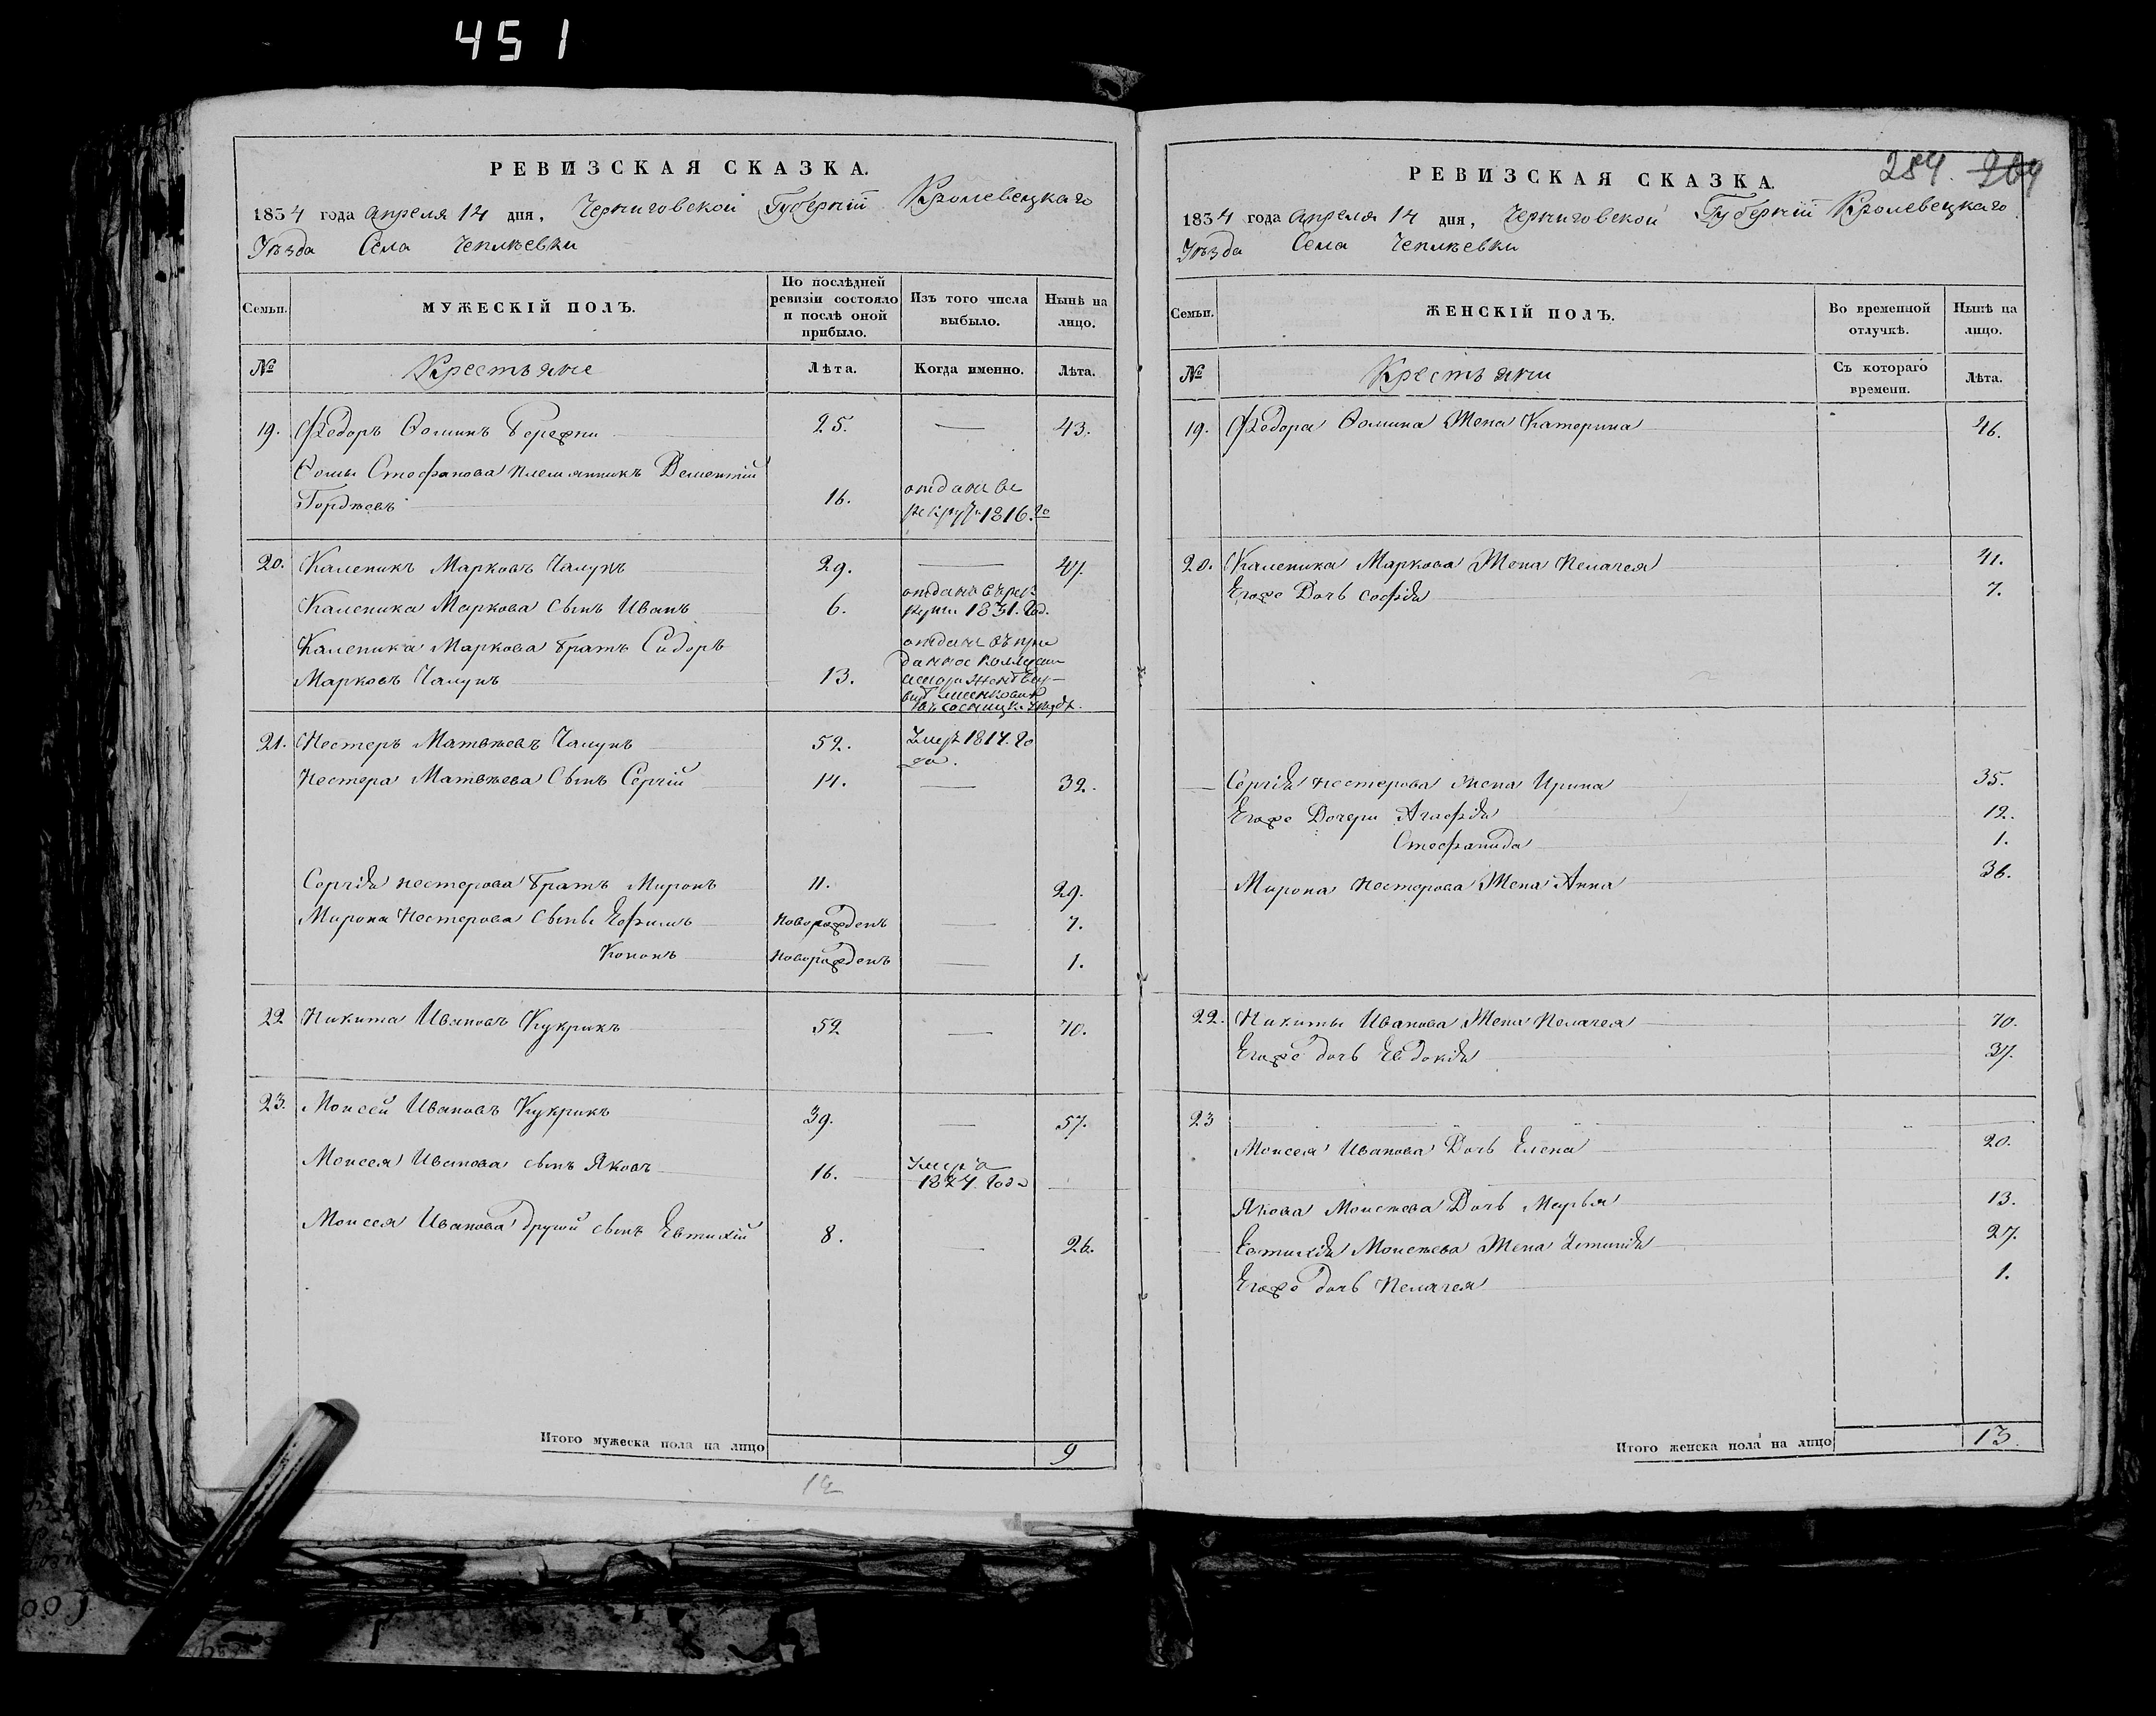 451
РЕВИЗСКАЯ СКАЗКА.
1834 года Апреля 14 дня, Черниговской Губернии Кролевецкаго
Уѣзда Села Чеплѣевки
Семьи.
МУЖЕСКІЙ ПОЛЪ.
По послѣдней ревизіи состояло и послѣ оной прибыло.
Изъ того числа выбыло.
Нынѣ на лицо.
№
Крестьяне
Лѣта.
Когда именно.
Лѣта.
19. Ѳедоръ Ѳоминъ 25. — 43.
Ѳомы Стефанова племянникъ Дементій
Гордѣевъ 16. отданъ въ
рекруты 1816. го
20. Каленикъ Марковъ Чалунъ 29. — 47.
Каленика Маркова сынъ Иванъ 6. отданъ въ рек
руты 1831. год.
Каленика Маркова братъ Сидоръ
Марковъ Чалунъ 13. отданъ въ при
данное
въ уѣздѣ.
21. Нестеръ Матвѣевъ Чалунъ 52. Умеръ 1814. го
да.
Нестера Матвѣева Сынъ Сергій 14. — 32.
Сергія Нестерова братъ Миронъ 11. 29.
Мирона Нестерова сыны Ефимъ новорожденъ — 7.
Кононъ новорожденъ — 1.
22 Никита Ивановъ Кукрикъ 52 — 70.
23. Моисей Ивановъ Кукрикъ 39. — 57.
Моисея Иванова сынъ Яковъ 16. Умеръ
1824. года
Моисея Иванова другой сынъ Евтихій 8. — 26.
Итого мужеска пола на лицо 9
284. 204
РЕВИЗСКАЯ СКАЗКА.
1834 года Апреля 14 дня, Черниговской Губернии Кролевецкаго
Уѣзда Села Чеплѣевки
Семьи.
ЖЕНСКІЙ ПОЛЪ.
Во временной отлучкѣ.
Нынѣ на лицо.
№
Крестьяни
Съ котораго времени.
Лѣта.
19. Ѳедора Ѳомина Жена Катерина 46.
20. Каленика Маркова Жена Пелагея 41.
Егоже Дочь Софія 7.
Сергія Нестерова жена Ирина 35.
Егоже Дочери Агафія 12.
Стефанида 1.
Мирона Нестерова Жена Анна 36.
22. Никиты Иванова Жена Пелагея 70.
Егоже дочь Евдокія 37.
23
Моисея Иванова Дочь Елена 20.
Якова Моисѣева Дочь Марья 13.
Евтихія Моисѣева Жена 27.
Егоже дочь Пелагея 1.
Итого женска пола на лицо 13.